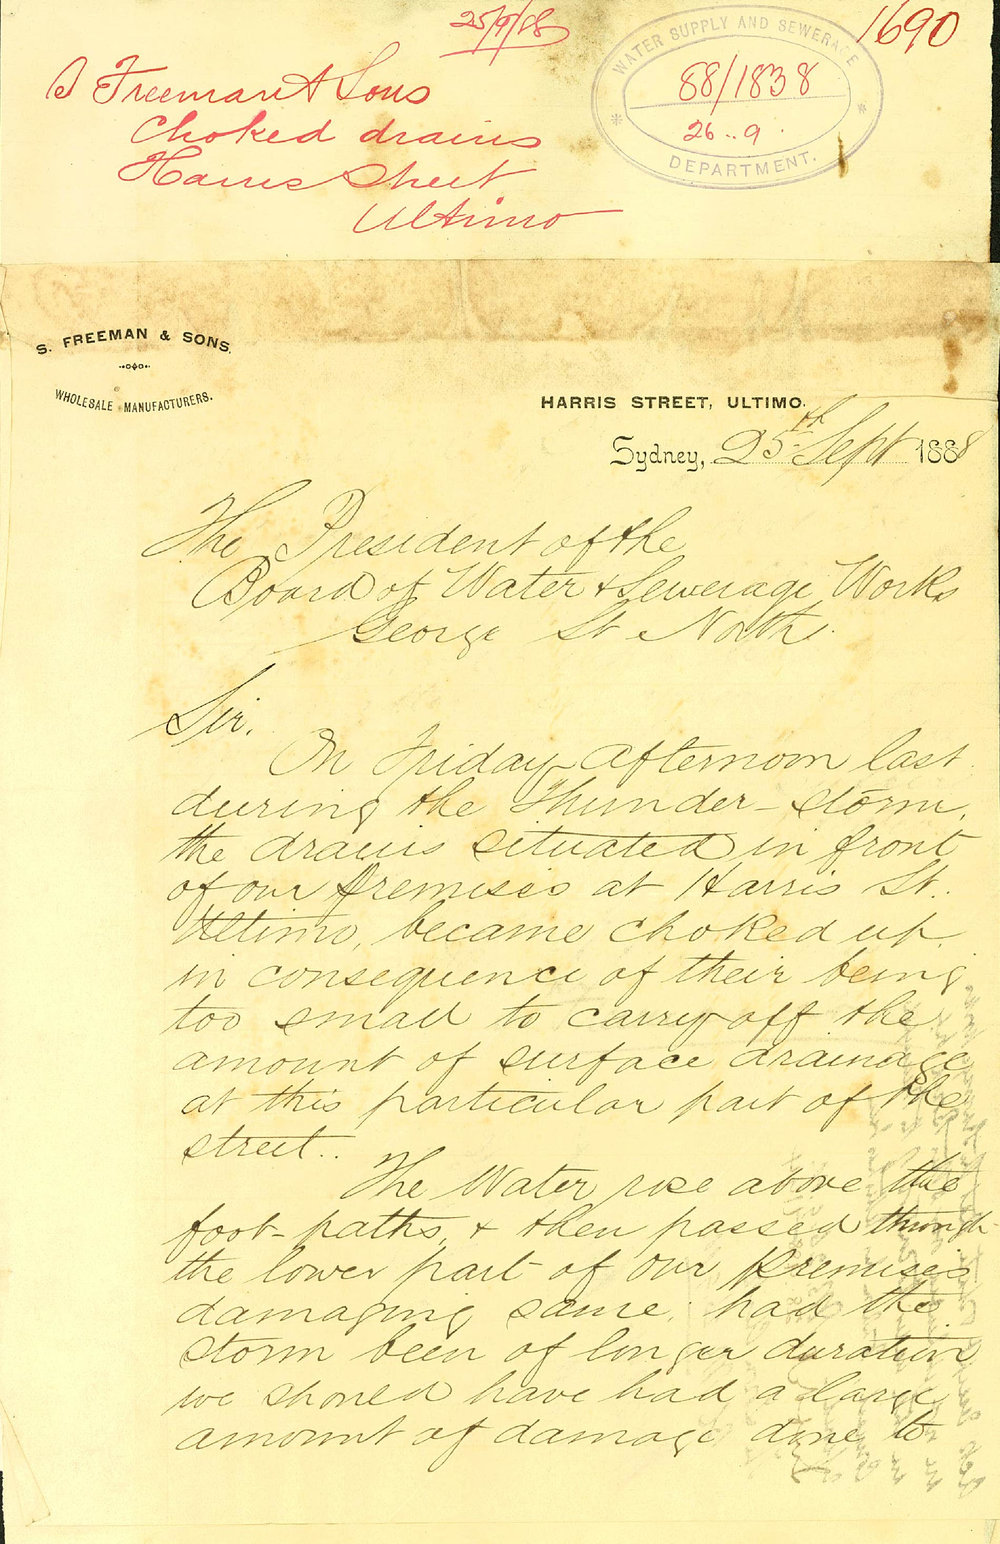 25/9/88
1690
WATER SUPPLY AND SEWERAGE
88/1838
26..9.
DEPARTMENT.
S Freeman & Sons
Choked drains
Harris Street
Ultimo
S. FREEMAN & SONS.
WHOLESALE MANUFACTURERS.
HARRIS STREET, ULTIMO.
Sydney, 25th Sept 1888
The President of the
Board of Water & Sewerage Works
George St North.
Sir.
On Friday afternoon last
during the Thunder-storm,
the drains situated in front
of our premises at Harris St.
Ultimo, became choked up
in consequence of their being
too small to carry off the
amount of surface drainage
at this particular part of the
street..
The Water rose above the
foot-paths, & then passed through
the lower part of our premises
damaging same. had the
storm been of longer duration
we should have had a large
amount of damage done to